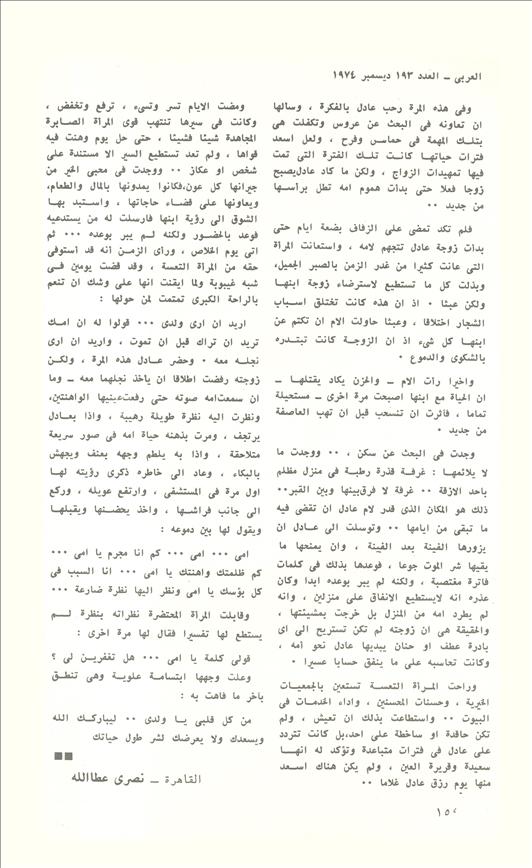 العربى ـ العدد ١٩٣ ديسمبر ١٩٧٤
وفى هذه المرة رحب عادل بالفكرة ، وسالها
ان تعاونه فى البحث عن عروس وتكفلت هى
بتلك المهمة فى حماس وفرح ، ولعل اسعد
فترات حياتها كانت تلك الفترة التى تمت
فيها تمهيدات الزواج ، ولكن ما كاد عادل يصبح
زوجا فعلا حتى بدأت هموم امه تطل برأسها
من جديد ٠٠
فلم تكد تمضى على الزفاف بضعة ايام حتى
بدأت زوجة عادل تتجهم لامه ، واستعانت المرأة
التى عانت كثيرا من غدر الزمن بالصبر الجميل،
وبذلت كل ما تستطيع لاسترضاء زوجة ابنها
ولكن عبثا ٠ اذ ان هذه كانت تختلق اسباب
الشجار اختلاقا ، وعبثا حاولت الام ان تكتم عن
ابنها كل شىء اذ ان الزوجة كانت تبتدره
بالشكوى والدموع ٠
واخيرا رأت الام ـ والحزن يكاد يقتلها ـ
ان الحياة مع ابنها اصبحت مرة اخرى ـ مستحيلة
تماما ، فآثرت ان تنسحب قبل ان تهب العاصفة
من جديد ٠
وجدت فى البحث عن سكن ، ٠٠ ووجدت ما
لا يلائمها : غرفة قذرة رطبة فى منزل مظلم
باحد الازقة ٠٠ غرفة لا فرق بينها وبين القبر ٠٠
ذلك هو المكان الذى قدر لام عادل ان تقضى فيه
ما تبقى من ايامها ٠٠ وتوسلت الى عادل ان
يزورها الفينة بعد الفينة ، وان يمنحها ما
يقيها شر الموت جوعا ، فوعدها بذلك فى كلمات
فاترة مغتصبة ، ولكنه لم يبر بوعده ابدا وكان
عذره انه لايستطيع الانفاق على منزلين ، وانه
لم يطرد امه من المنزل بل خرجت بمشيئتها ،
والحقيقة هى ان زوجته لم تكن تستريح الى اى
بادرة عطف او حنان يبديها عادل نحو أمه ،
وكانت تحاسبه على ما ينفق حسابا عسيرا ٠
وراحت المرأة التعسة تستعين بالجمعيات
الخيرية ، وحسنات المحسنين ، واداء الخدمات فى
البيوت ٠٠ واستطاعت بذلك ان تعيش ، ولم
تكن حاقدة او ساخطة على احد،بل كانت تتردد
على عادل فى فترات متباعدة وتؤكد له انها
سعيدة وقريرة العين ، ولم يكن هناك اسعد
منها يوم رزق عادل غلاما ٠٠
ومضت الايام تسر وتسىء ، ترفع وتخفض ،
وكانت فى سيرها تنتهب قوى المرأة الصابرة
المجاهدة شيئا فشيئا ، حتى حل يوم وهنت فيه
قواها ، ولم تعد تستطيع السير الا مستندة على
شخص او عكاز ٠٠ ووجدت فى محبى الخير من
جيرانها كل عون،فكانوا يمدونها بالمال والطعام،
ويعاونها على قضاء حاجاتها ، واستبد بها
الشوق الى رؤية ابنها فارسلت له من يستدعيه
فوعد بالحضور ولكنه لم يبر بوعده ٠٠٠ ثم
اتى يوم الخلاص ، ورأى الزمن انه قد استوفى
حقه من المرأة التعسة ، وقد قضت يومين فى
شبه غيبوبة ولما ايقنت انها على وشك ان تنعم
بالراحة الكبرى تمتمت لمن حولها :
اريد ان ارى ولدى ٠٠٠ قولوا له ان امك
تريد ان تراك قبل ان تموت ، واريد ان ارى
نجله معه ٠ وحضر عادل هذه المرة ، ولكن
زوجته رفضت اطلاقا ان يأخذ نجلهما معه ـ وما
ان سمعت امه صوته حتى رفعت عينيها الواهنتين،
ونظرت اليه نظرة طويلة رهيبة ، واذا بعادل
يرتجف ، ومرت بذهنه حياة امه فى صور سريعة
متلاحقة ، واذا به يلطم وجهه بعنف ويجهش
بالبكاء ، وعاد الى خاطره ذكرى رؤيته لها
اول مرة فى المستشفى ، وارتفع عويله ، وركع
الى جانب فراشها ، واخذ يحضنها ويقبلها
ويقول لها بين دموعه :
امى ٠٠٠ امى ٠٠٠ كم انا مجرم يا امى ٠٠٠
كم ظلمتك واهنتك يا امى ٠٠٠ انا السبب فى
كل بؤسك يا امى ونظر اليها نظرة ضارعة ٠٠٠
وقابلت المرأة المحتضرة نظراته بنظرة لم
يستطع لها تفسيرا فقال لها مرة اخرى :
قولى كلمة يا امى ٠٠٠ هل تغفرين لى ؟
وعلت وجهها ابتسامة علوية وهى تنطق
بآخر ما فاهت به :
من كل قلبى يا ولدى ٠٠ ليباركك الله
ويسعدك ولا يعرضك لشر طول حياتك
القاهرة ـ نصرى عطاالله